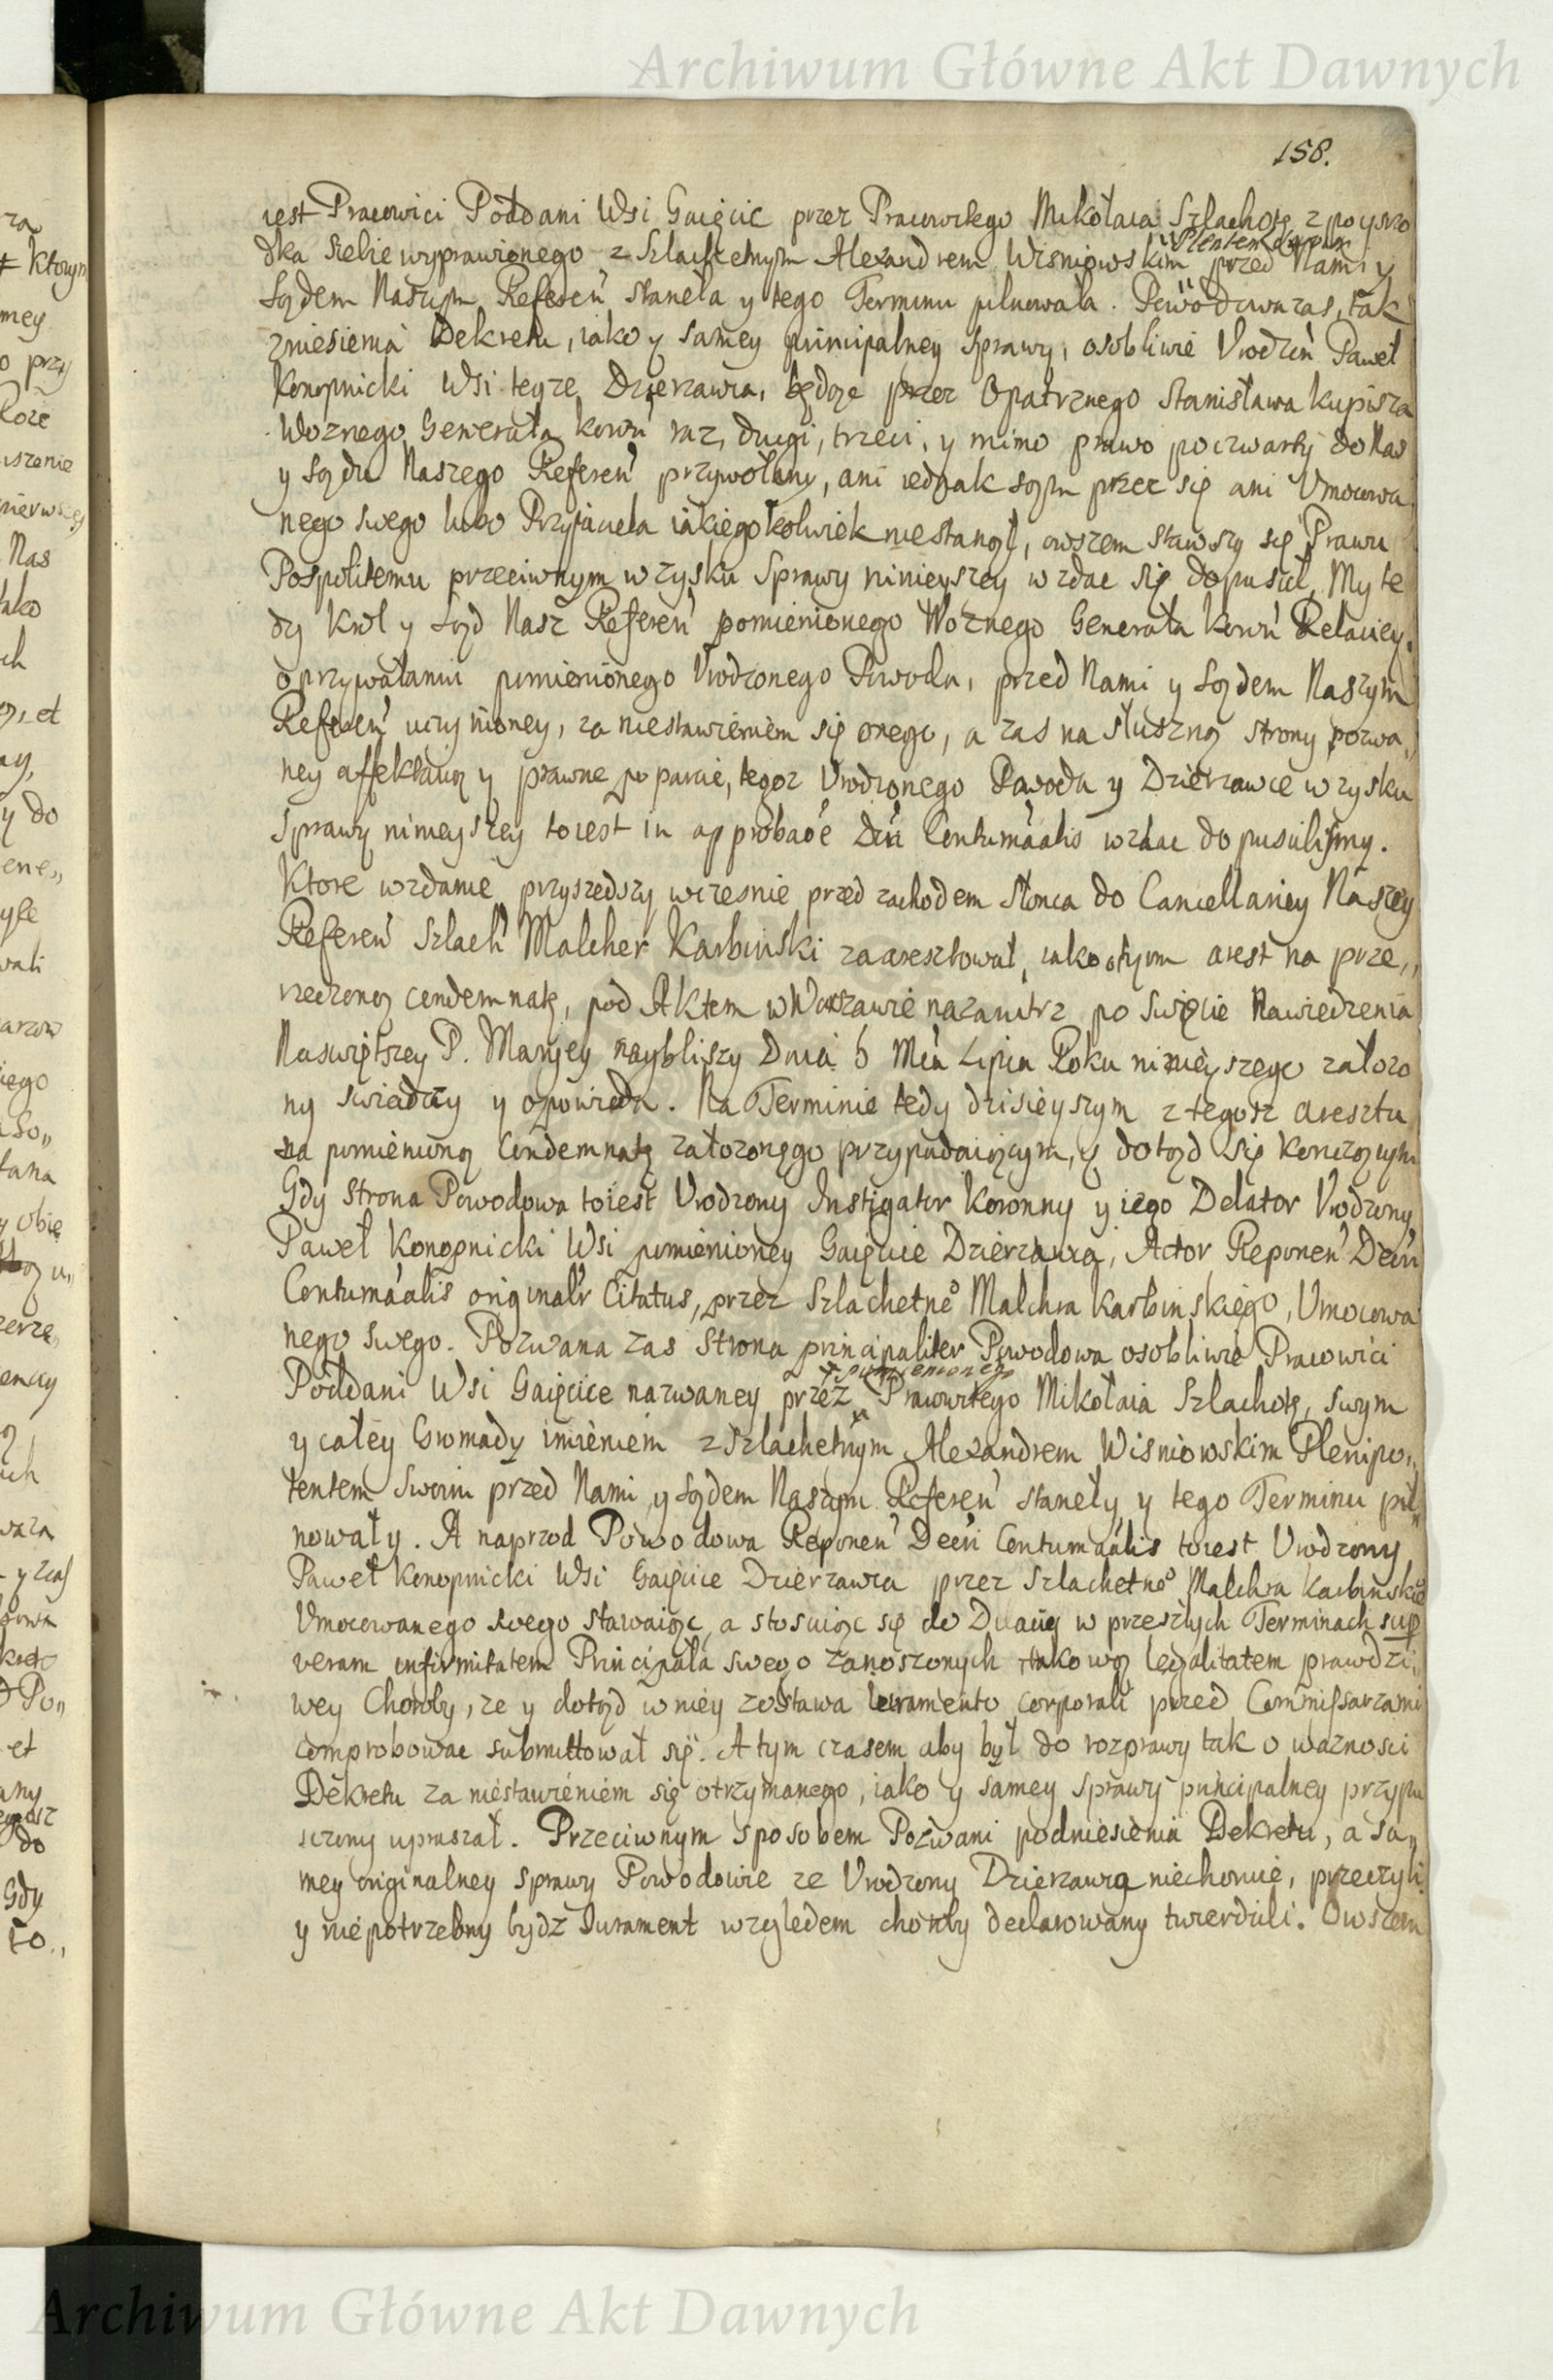 Archiwum Główne Akt Dawnych
158.
iest Pracowici Poddani Wsi Gaięcic przez Pracowitego Mikołaia Szlachotę z pośrzo
dka siebie wyprawionego z Szlachetnym Alexandrem Wisniowskim przed Nami y
Sądem Naszym Referen stanęła y tego Terminu pilnowała. Powodowa zas, tak
zniesienia Dekretu, iako y samey principalney sprawy, osobliwie Vrodzon Paweł
Konopnicki Wsi teyze Dzierzawca, będąc przez Opatrznego Stanisława Kupisza
Woznego Generała Koron raz, drugi, trzeci, y mimo prawo poczwarty do Nas
y Sądu Naszego Referen przywołany, ani iednak sam przez się ani Vmocowa
nego swego lubo Przyiaciela iakiegokolwiek niestanął, owszem stawszy się Prawu
Pospolitemu przeciwnym w zysku Sprawy ninieyszey wzdac się dopuscił, My te
dy Krol y Sąd Nasz Referen pomienionego Woznego Generała Koron Relaciey
o przywołaniu pomienionego Vrodzonego Powoda, przed Nami y Sądem Naszym
Referen uczynioney, za niestawieniem się onego, a zas na słuszną strony pozwa,,
ney affektacią y prawne poparcie, tegoz Vrodzonego Powoda y Dzierzawce w zysku
Sprawy ninieyszey toiest in approbaoe Dcti Contumaalis wzdac dopuscilismy.
Ktore wzdanie przyszedszy wczesnie przed zachodem słonca do Cancellariey Naszey
Referen Szlach Malcher Karbinski zaaresztował, iako o tym arest na prze,,
rzeczoną condemnatę, pod Aktem w Warszawie nazaiutrz po Swięcie Nawiedzenia
Naswiętszey P. Maryey naybliszy Dnia 6 Mca Lipca Roku ninieyszego załozo
ny swiadczy y opowieda. Na Terminie tedy dzisieyszym z tegosz aresztu
na pomienioną Condemnatę załozonego przypadaiącym, y dotąd się konczącym
Gdy Strona Powodowa toiest Vrodzony Instigator Koronny y iego Delator Vrodzony
Paweł Konopnicki Wsi pomienioney Gaięcice Dzierzawca, Actor Reponen Decri
Contumaalis originalr Citatus, przez Szlachetne° Malchra Karbinskiego, Vmocowa
nego swego. Pozwana zas Strona principaliter Powodowa osobliwie Pracowici
pomienionego
Poddani Wsi Gaięcice nazwaney przez Pracowitego Mikołaia Szlachotę, swym
y całey Gromady imieniem z Szlachetnym Alexandrem Wisniowskim Plenipo,,
tentem swoim przed Nami y Sądem Naszym Referen stanęły y tego Terminu pil
nowały. A naprzod Powodowa Reponen Decri Contumaalis toiest Vrodzony
Paweł Konopnicki Wsi Gaięcice Dzierzawca przez Szlachetne° Malchra Karbinskie°
Vmocowanego swego stawaiąc, a stosuiąc się do Dilaciy w przeszłych Terminach sup
veram infirmitatem Principała swego zanoszonych iakową legalitatem prawdzi,,
wey Choroby, ze y dotąd w niey zostawa iuramento corporali przed Commissarzami
comprobowac submittował się. A tym czasem aby był do rozprawy tak o waznosci
Dekretu za niestawieniem się otrzymanego, iako y samey sprawy principalney przypu
sczony upraszał. Przeciwnym sposobem Pozwani podniesienia Dekretu, a sa,,
mey originalney sprawy Powodowie ze Vrodzony Dzierzawca niechoruie, przeczyli
y niepotrzebny bydz Iurament względem choroby declarowany twierdzili. Owszem
Archiwum Główne Akt Dawnych